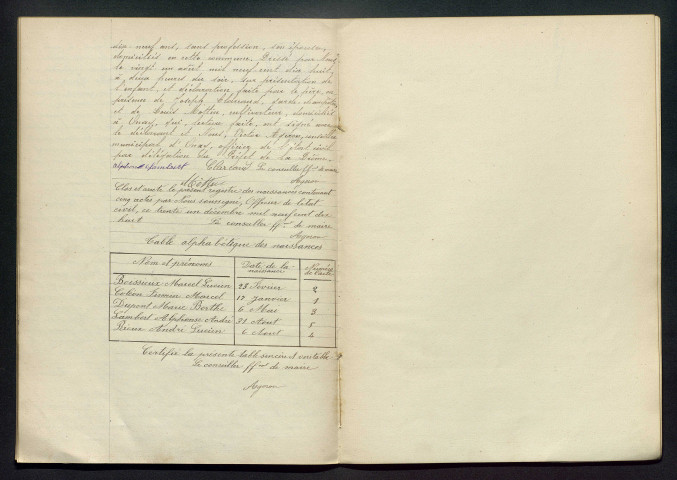 dix-neuf ans, sans profession, son épouse,
domiciliés en cette commune. Dressé par Nous
le vingt un août mil neuf cent dix huit,
à deux heures du soir, sur présentation de
l'enfant et déclaration faite par le père, en
présence de Joseph garde
et de Louis domiciliés
à Ouray, qui, lecture faite, ont signé avec
le déclarant et Nous, Victor Aymon, conseiller
municipal d' officier de l'état civil
par délégation du Préfet de la Drôme.
Le conseiller ff.ons de maire
Aymon
Clos et arrêté le présent registre des naissances contenant
cinq actes par Nous soussigné, Officier de l'état
civil, ce trente un décembre mil neuf cent dix
huit Le conseiller ff.ons de maire
Aymon
Table alphabétique des naissances
Nom et prénoms Date de la naissance Numéro de l'acte
Marcel Lucien 23 Février 2
Firmin Marcel 17 Janvier 1
Dupont Marie Berthe 6 Mai 3
Lambert Alphonse André 21 Août 5
André Lucien 6 Août 4
Certifié la présente table sincère et véritable
Le conseiller ff.ons de maire
Aymon